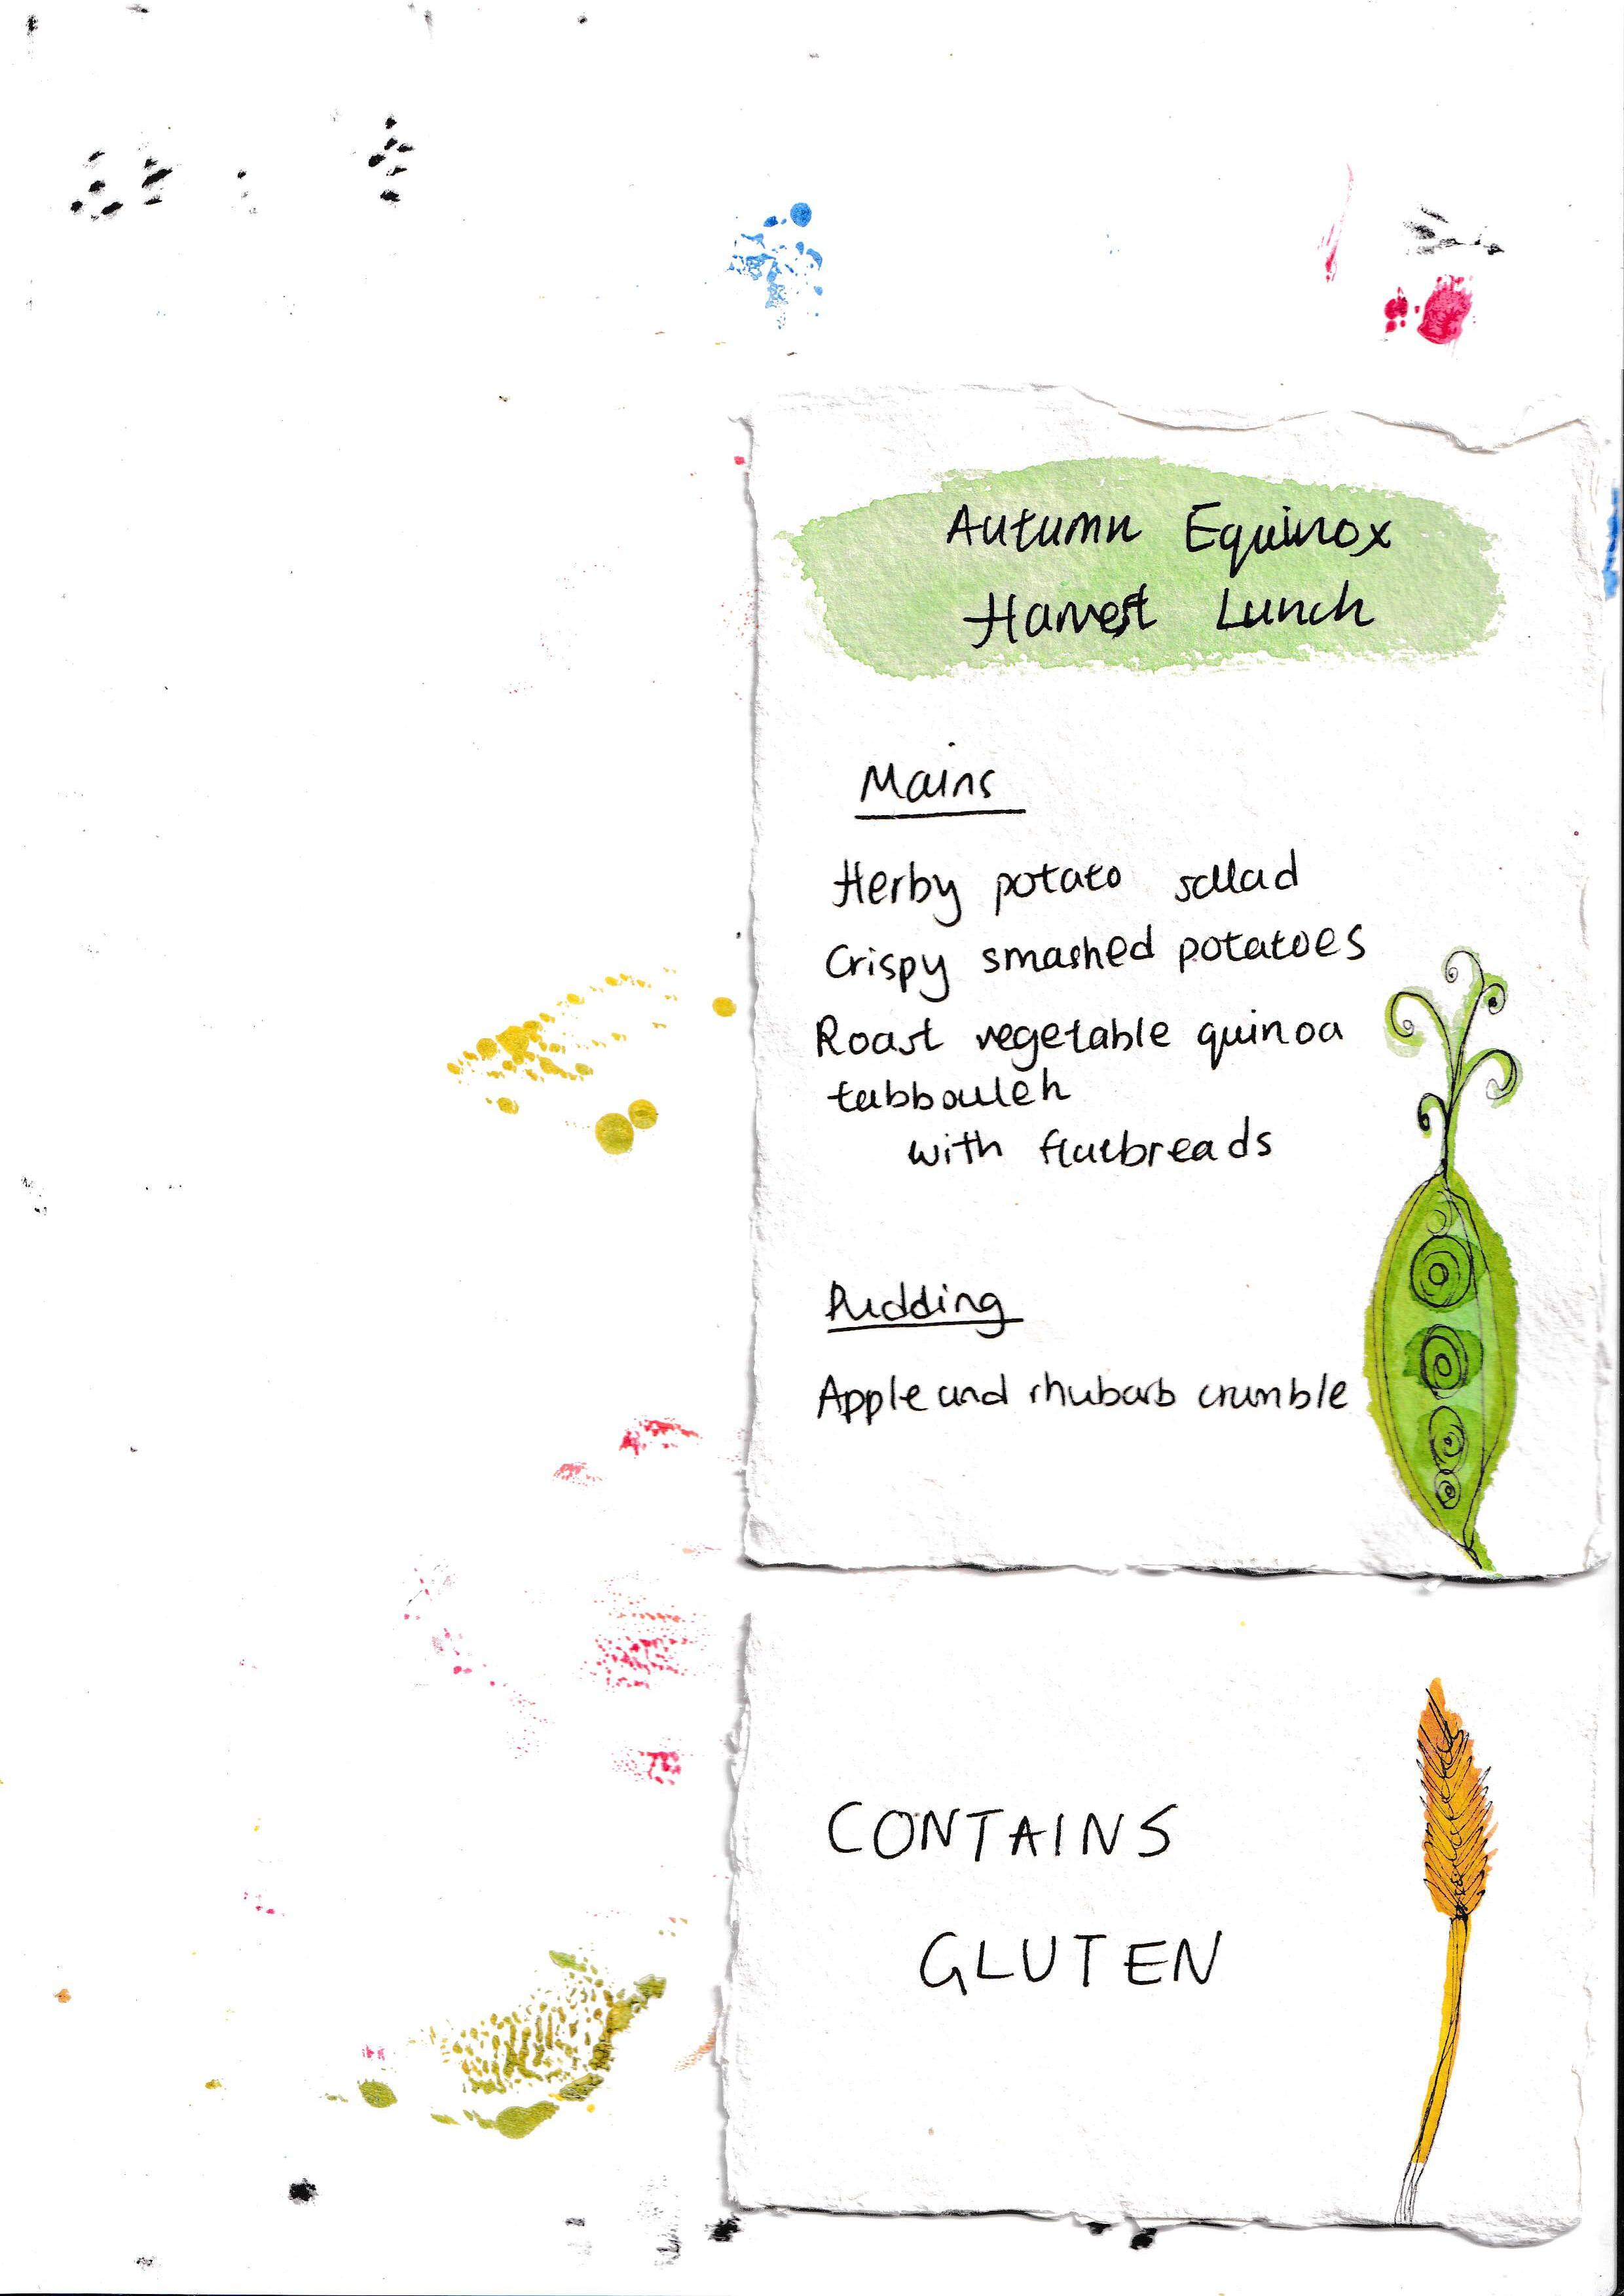 Autumn Equinox
Harvest Lunch
Mains
Herby potato salad
Crispy smashed potatoes
Roast vegetable quinoa
tabbouleh
with flatbreads
Pudding
Apple and rhubarb crumble
CONTAINS
GLUTEN